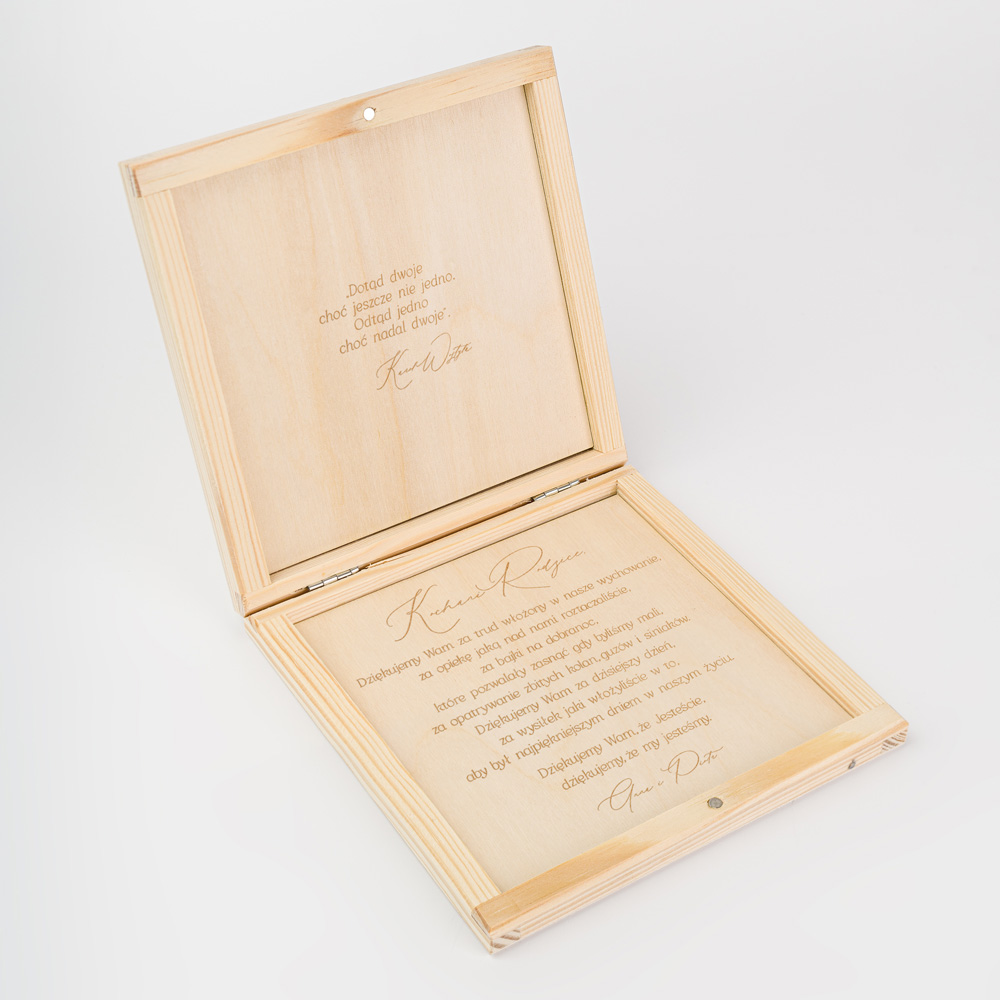 „Dotąd dwoje
choć jeszcze nie jedno.
Odtąd jedno
choć nadal dwoje”.
Karol Wojtyła
Kochani Rodzice,
Dziękujemy Wam za trud włożony w nasze wychowanie,
za opiekę jaką nad nami roztaczaliście,
za bajki na dobranoc,
które pozwalały zasnąć gdy byliśmy mali,
za opatrywanie zbitych kolan, guzów i siniaków.
Dziękujemy Wam za dzisiejszy dzień,
za wysiłek jaki włożyliście w to,
aby był najpiękniejszym dniem w naszym życiu.
Dziękujemy Wam, że Jesteście,
dziękujemy, że my jesteśmy.
Anna i Piotr